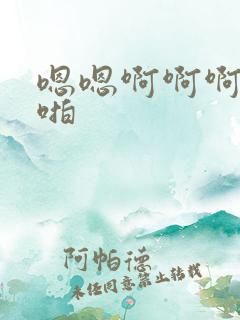 嗯嗯啊啊啊
啪
阿帕德
未经同意禁止转载